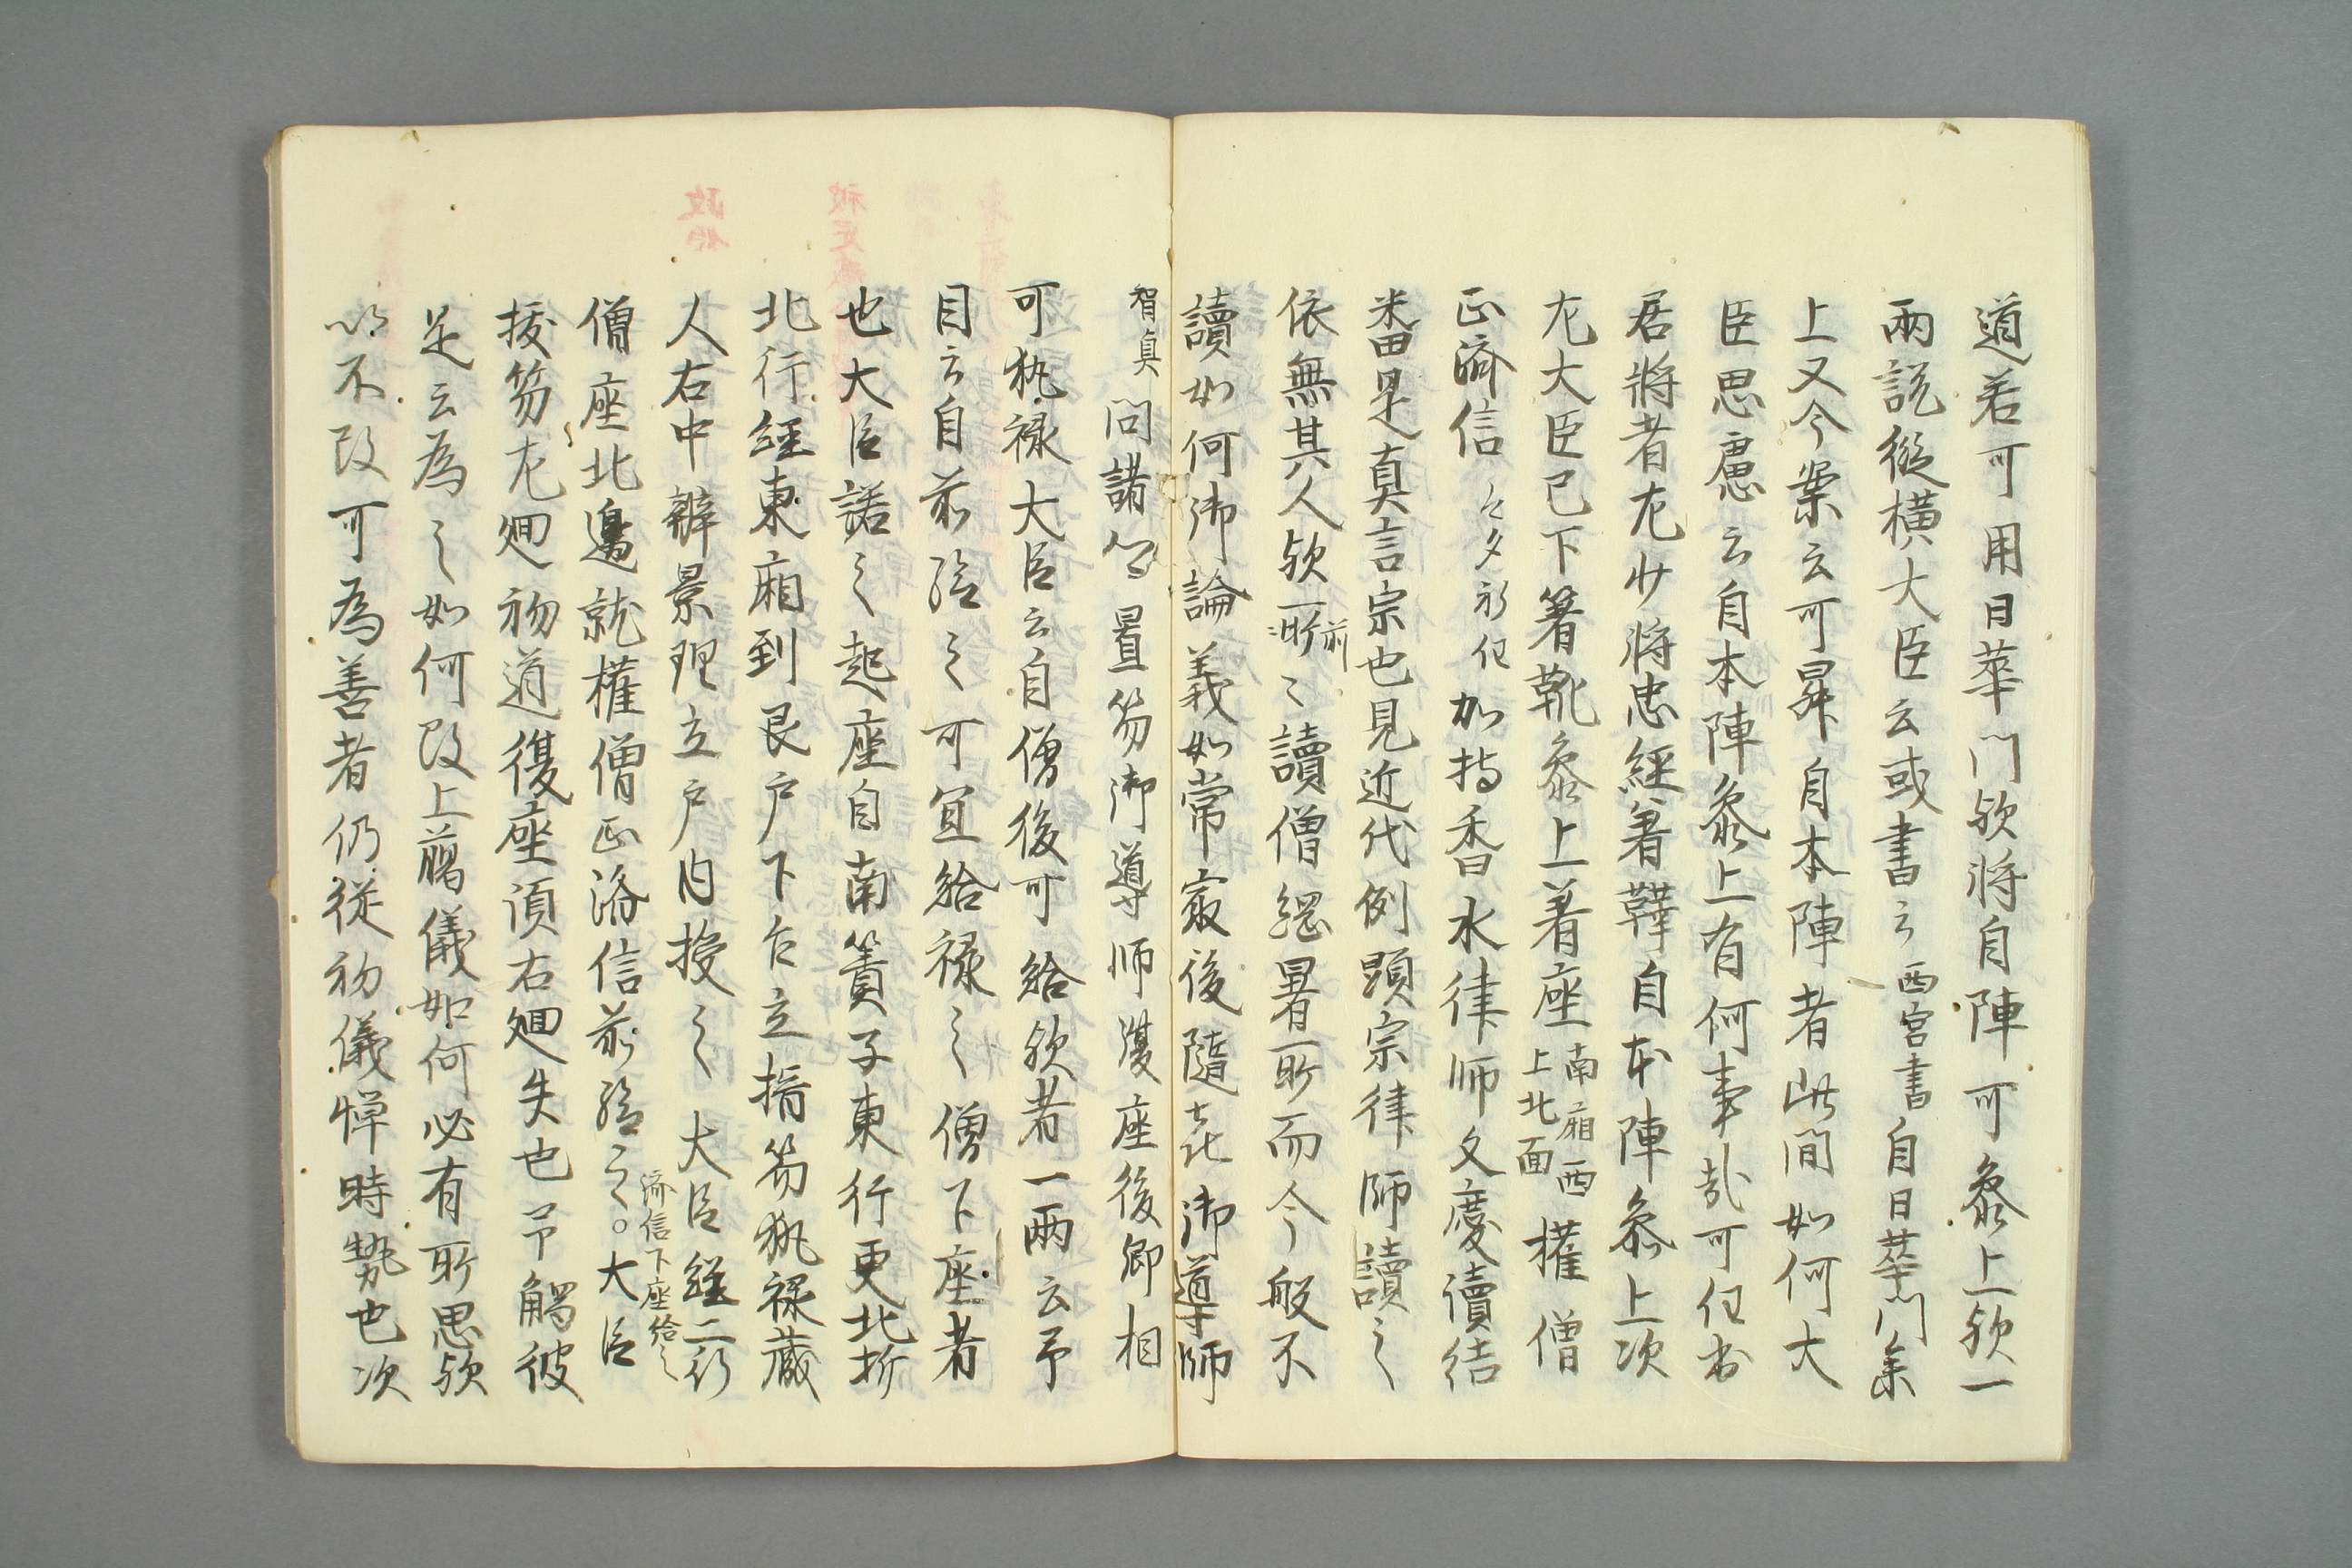 道若可用日華門欤將自陣可参上欤一
兩説從横大臣云或書云西宮書自日華門参
上又今案云可昇自本陣者此間如何大
臣思慮云自本陣参上有何事哉可但出
居將者左少將忠經著鞾自本陣参上次
左大臣已下著靴参上着座南廂西上北面權僧
正済信加持香水律師文慶讀結
番是真言宗也見近代例顕宗律師讀之
依無其人欤前所々讀僧綱署所而今般不
讀如何御論義如常最後随喜御導師
智真問講公置笏御導師復座後卿相
可執禄大臣云自僧後可給欤者一両云予
目云自前給之可宜給禄之僧下座者
也大臣諾之起座自南簀子東行更北折
北行經東廂到艮戸下乍立搢笏執禄蔵
人右中辨景理立戸内授之大臣經二行
僧座北邊就權僧正済信前給之。大臣
済信下座給之
抜笏左廻初道復座須右廻失也予觸彼
是云為之如何改上臈儀如何必有所思欤
以不改可為善者仍従初儀憚時勢也次